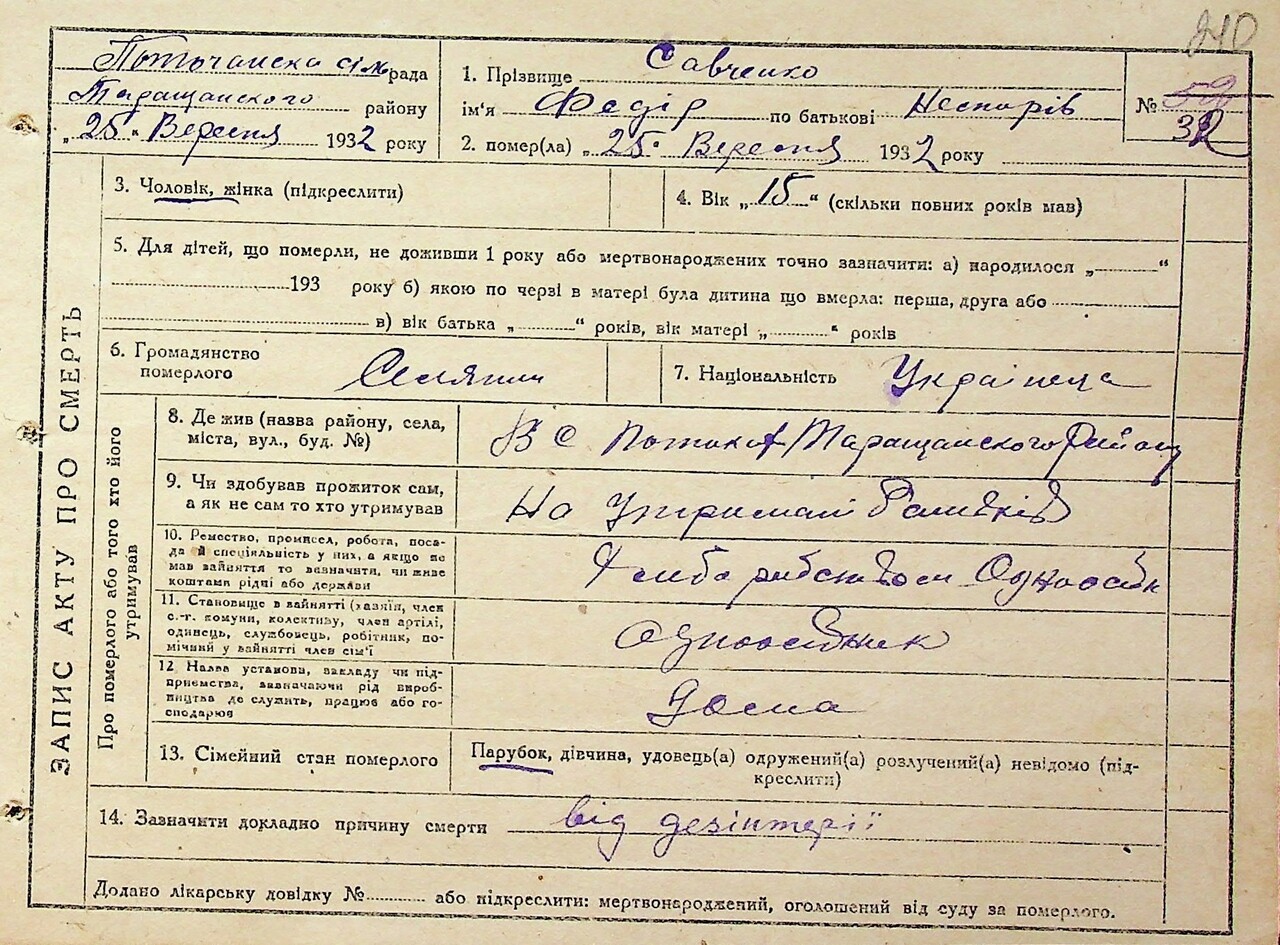 210
Поточанска сільрада
Таращанского району
„25“ Вересня 1932 року
1. Прізвище Савченко
ім'я Федір по батькові
2. помер(ла) „25“ Вересня 1932 року
№ 59
32
ЗАПИС АКТУ ПРО СМЕРТЬ
3. Чоловік, жінка (підкреслити)
4. Вік „15“ (скільки повних років мав)
5. Для дітей, що померли, не доживши 1 року або мертвонароджених точно зазначити: а) народилося „ “
193 року б) якою по черві в матері була дитина що вмерла: перша, друга або
в) вік батька „ “ років, вік матері „ “ років
6. Громадянство
померлого Селянин
7. Національність Українец
Про померлого або того хто його
утримував
8. Де жив (назва району, села,
міста, вул., буд. №)
В с Потоках Таращанского Району
9. Чи здобував прожиток сам,
а як не сам то хто утримував
На Утриман Батьків
10. Ремество, промисел, робота, поса-
да й спеціяльність у них, а якщо не
мав вайняття то вазначити, чи живе
коштами рідні або держави
Одноосібн
11. Становище в вайнятті (хазяїн, член
с.-г. комуни, колективу, член артілі,
одинець, службовець, робітник, по-
мічний у вайнятті член сім'ї
Одноосібник
12. Назва установи, закладу чи під-
приємства, вазначаючи рід вироб-
ництва де служить, працює або го-
сподарює
Дома
13. Сімейний стан померлого
Парубок, дівчина, удовець(а) одружений(а) розлучений(а) невідомо (під-
креслити)
14. Зазначити докладно причину смерти від дезінтерії
Додано лікарську довідку № або підкреслити: мертвонароджений, оголошений від суду за померлого.